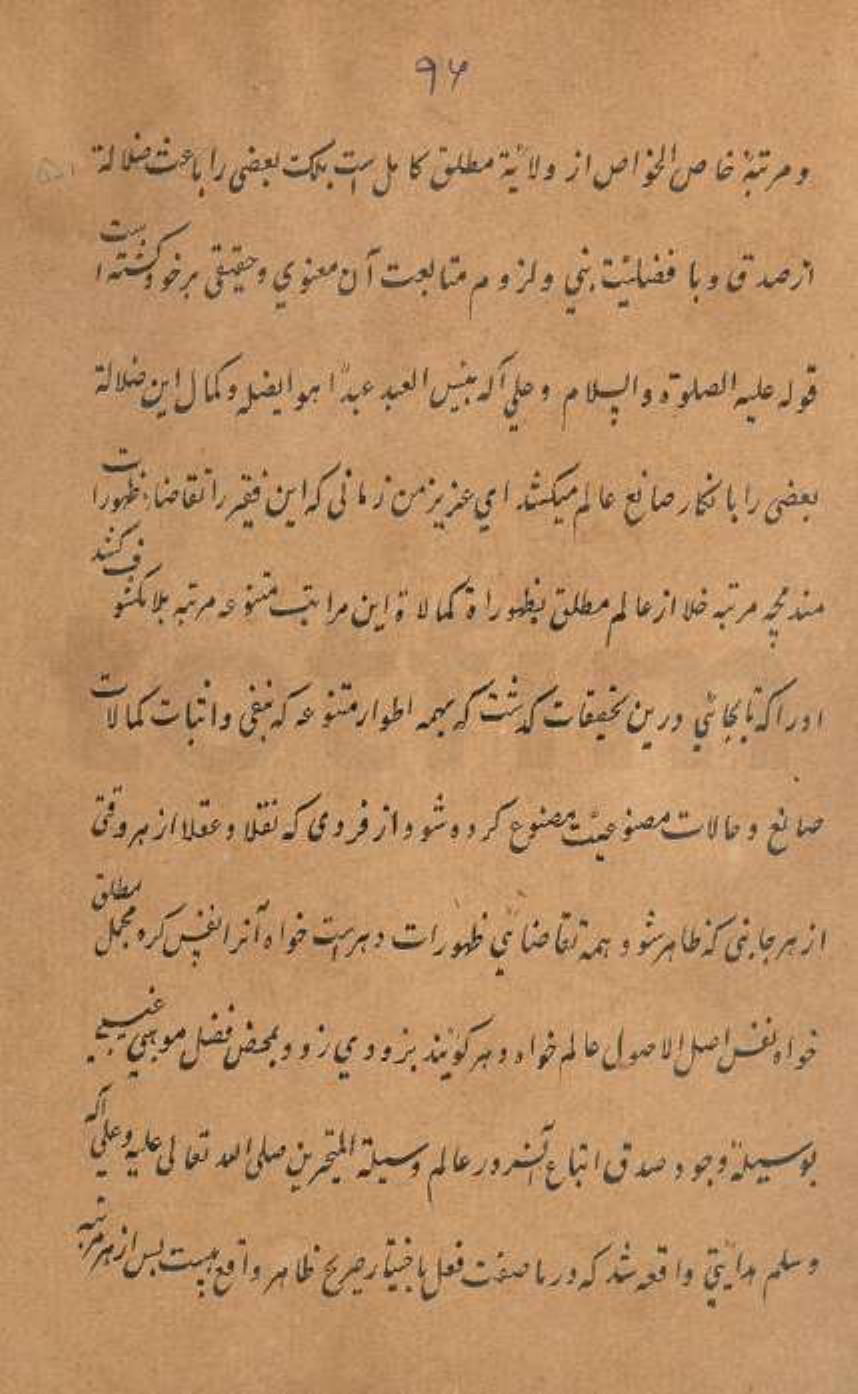 ۹۴
و مرتبهٔ خاص الخواص از ولایة مطلق کامل است بلکه بعضی را باعث ضلالة
از صدق و با فضلیّت بنی و لزوم متابعت آن معنوی و حقیقی برخود گشته است
قوله علیه الصلوة والسلام و علی آله بئس العبد عبدًا هو ایضله و کمال این ضلالة
بعضی را بانکار صانع عالم میکشد ای عزیز من زمانی که این فقیر را تقاضاء ظهورات
مرتبه خلا از عالم مطلق بظهوراة کمالاة این مراتب متنوعه مرتبه بلا
ادراکه تا بجائی درین تحقیقات کدشت که بهمه اطوار متنوعه که بنفی و اثبات کمالات
صانع و حالات مصنوعیّت مصنوع کرده شود از فردی که نقلا و عقلا از هر وقتی
از هر جانبی که ظاهر شود همه تقاضائی ظهورات دهر است خواه آنرا نفس کره مجمل مطلق
خواه نفس اصل الاصول عالم خواه دهر کویند بزودی زود و بمحض فضل موهبی غیبی
بوسیلهٔ وجود صدق اتباع آنسرور عالم وسیلة المتحیرین صلی الله تعالی علیه و علی آله
وسلم هدایتی واقعه شد که در ما صفت فعل باختیار صریح ظاهر واقع هست پس از هر مرتبه